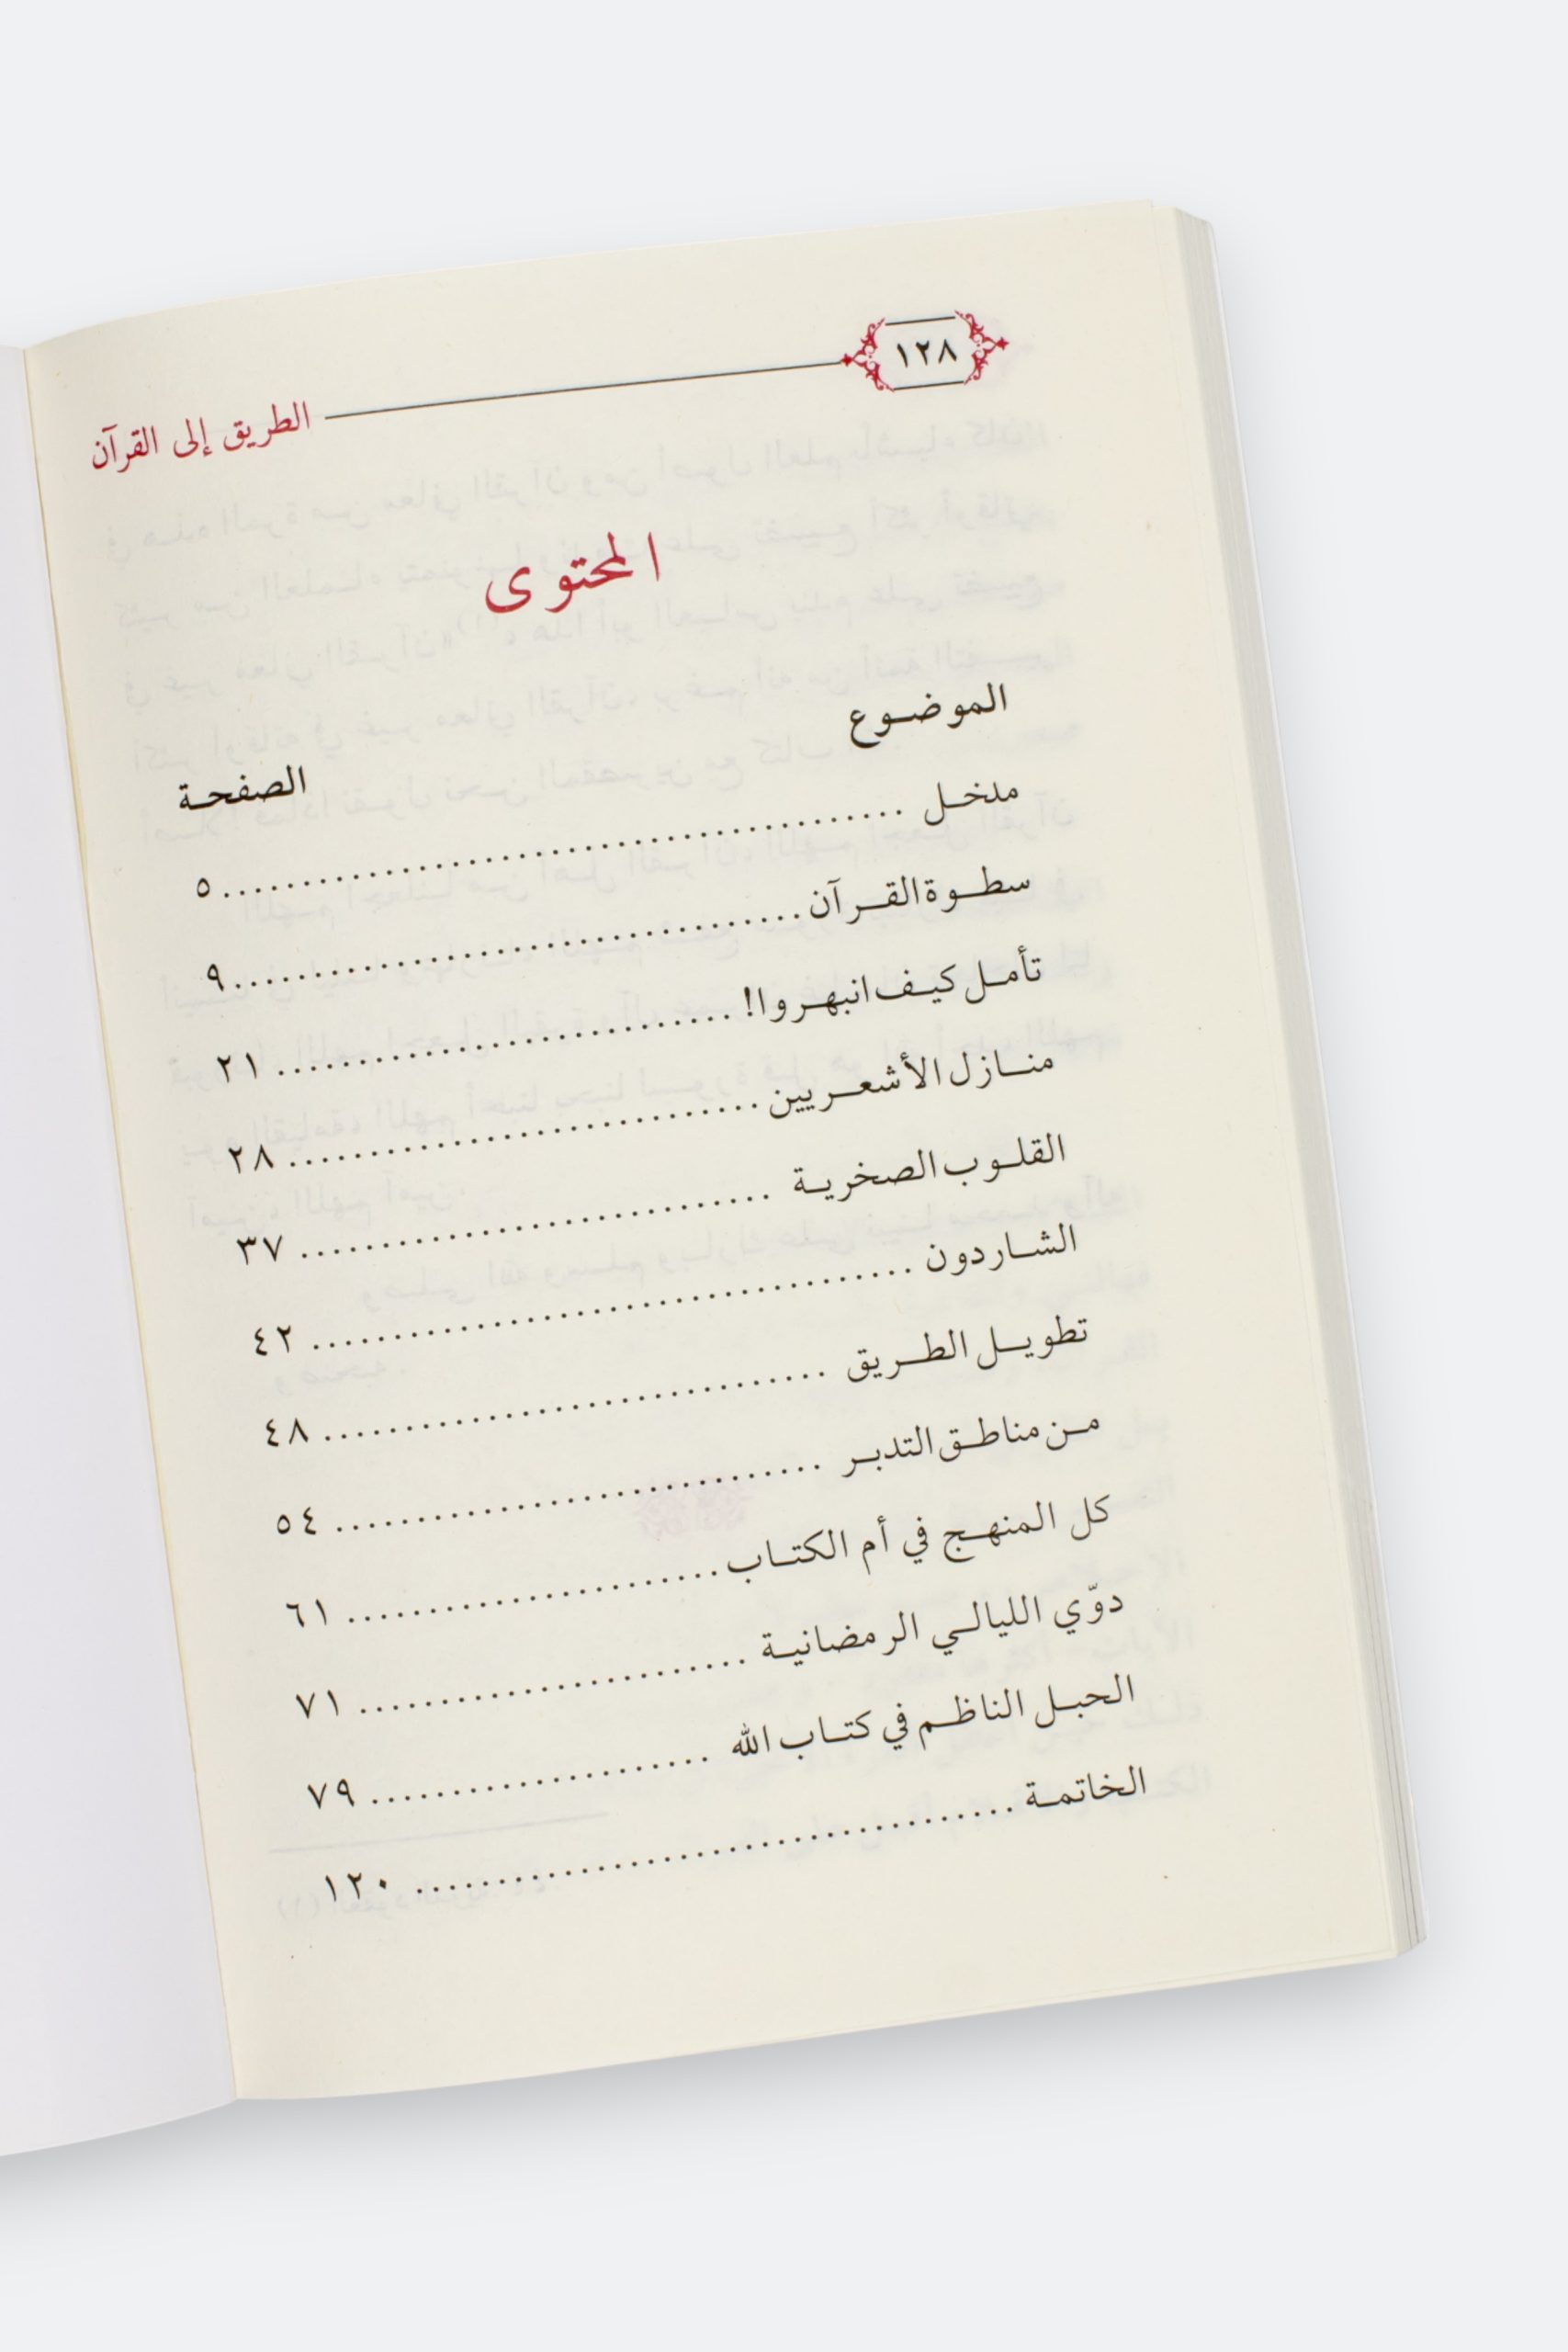 ١٢٨
الطريق إلى القرآن
المحتوى
الموضوع الصفحة
مدخل ........................................ ٥
سطوة القرآن ........................................ ٩
تأمل كيف انبهروا! ........................................ ٢١
منازل الأشعريين ........................................ ٢٨
القلوب الصخرية ........................................ ٣٧
الشاردون ........................................ ٤٢
تطويل الطريق ........................................ ٤٨
من مناطق التدبر ........................................ ٥٤
كل المنهج في أم الكتاب ........................................ ٦١
دوّي الليالي الرمضانية ........................................ ٧١
الحبل الناظم في كتاب الله ........................................ ٧٩
الخاتمة ........................................ ١٢٠